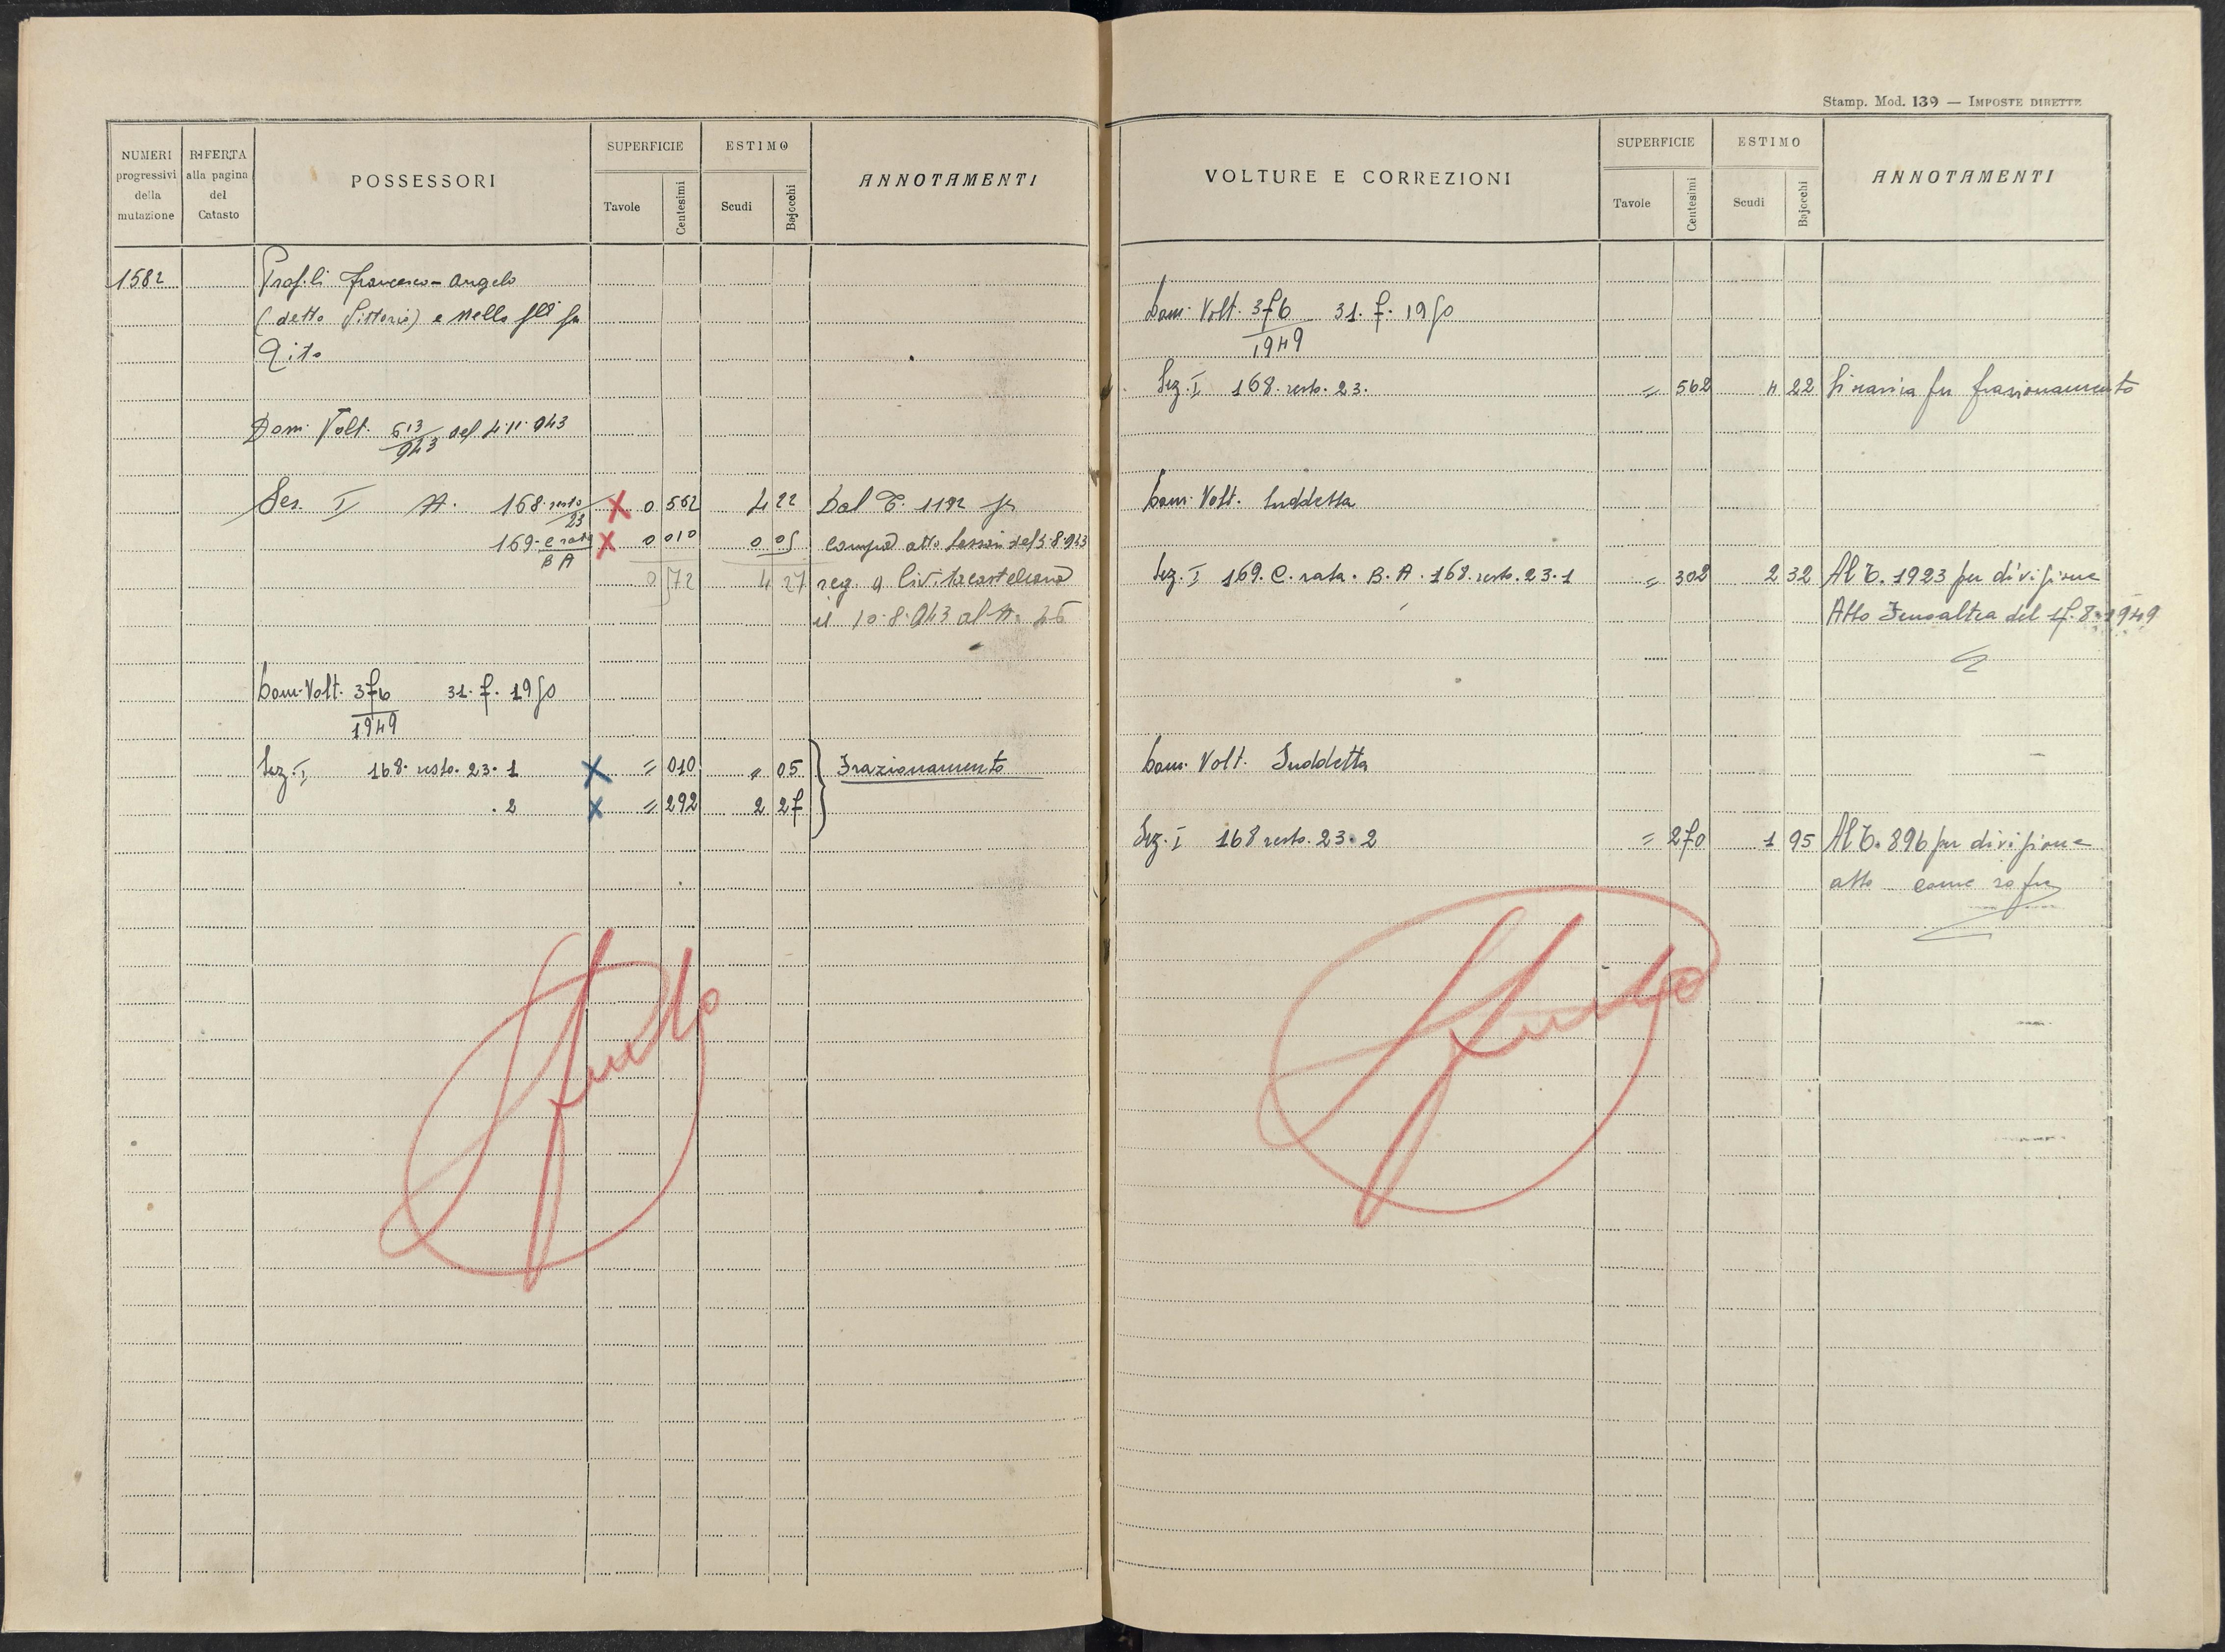 Stamp. Mod. 139 — IMPOSTE DIRETTE
NUMERI progressivi della mutazione
RIFERTA alla pagina del Catasto
POSSESSORI
SUPERFICIE
Tavole
Centesimi
ESTIMO
Scudi
Bajocchi
ANNOTAMENTI
1582 Profili Francesco-Angelo
(detto Vittorio) e Nello flli fu
Tito
Dom. Volt. 613/943 del 4.11.943
Sez. I N. 168 resto/23 X 0 562 4 22 Dal T. 1192 per
169 C rata/BA X 0 010 0 05 compra atto del 5.8.943
0 572 4 27 reg. a Civitacastellana
il 10.8.943 al N. 46
Dom. Volt. 376/1949 31.7.1950
Sez. I 168. resto. 23. 1 X = 010 " 05 } Frazionamento
. 2 X = 292 2 27
Sfinito
VOLTURE E CORREZIONI
SUPERFICIE
Tavole
Centesimi
ESTIMO
Scudi
Bajocchi
ANNOTAMENTI
Dom. Volt. 376/1949 31.7.1950
Sez. I 168. resto. 23. = 562 4 22 Si scarica per frazionamento
Dom. Volt. Suddetta
Sez. I 169. C. rata. B. A. 168. resto. 23. 1 = 302 2 32 Al T. 1923 per divisione
Atto Fensaltea del 17.8.1949
Dom. Volt. Suddetta
Sez. I 168 resto. 23. 2 = 270 1 95 Al T. 896 per divisione
atto come sopra